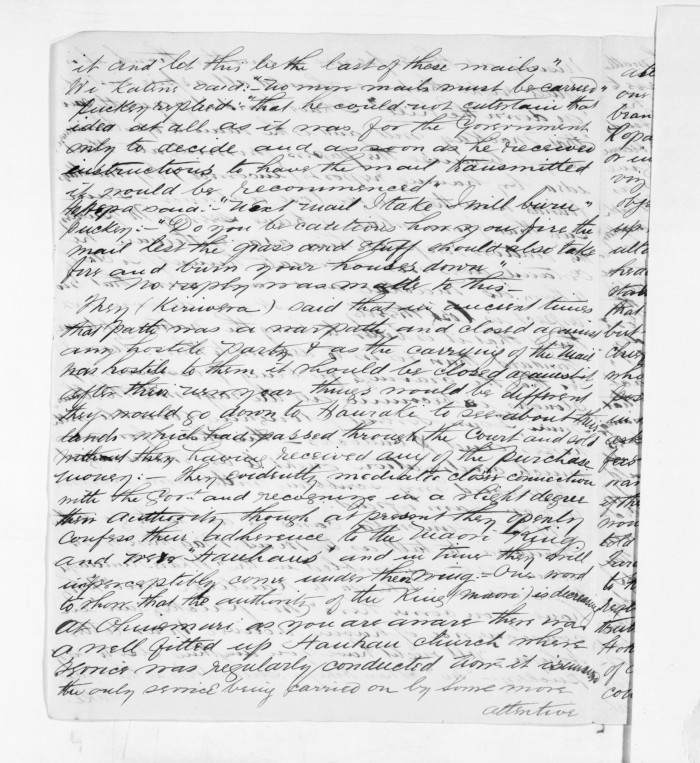 it and let this be the last of these mails."
Wi Katene said:- "No more mails must be carried"
Puckey replied:- "that he could not entertain that
idea at all as it was for the Government
only to decide and as soon as he received
instructions to have the mail transmitted
it would be recommenced"
Hepa said:- "Next mail I take I will burn"
Puckey:- "Do you be cautious how you fire the
mail lest the grass and stuff should also take
fire and burn your houses down
No reply was made to this-
They (Kiriwera) said that in ancient times
that path was a war path and closed against
any hostile party & as the carrying of the Mail
was hostile to them it should be closed against it
after their new year things would be different
they would go down to Hauraki to see about their
lands which had passed through the Court and sold
without their having received any of the purchase
money:- They evidently meditate closer connection
with the Govt. and recognize in a slight degree
their Authority though at present they openly
confess their adherence to the Maori King
and were "Hauhaus" and in time they will
imperceptibly come under their wing.- One word
to show that the authority of the King (Maori) is decreasing
At Ohinemuri as you are aware there was
a well fitted up Hauhau Church where
service was regularly conducted now it is
the only service being carried on by some more
attentive